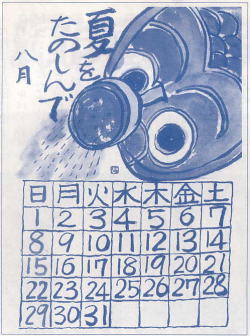 夏を
たのしんで
八月
日 月 火 水 木 金 土
1 2 3 4 5 6 7
8 9 10 11 12 13 14
15 16 17 18 19 20 21
22 23 24 25 26 27 28
29 30 31